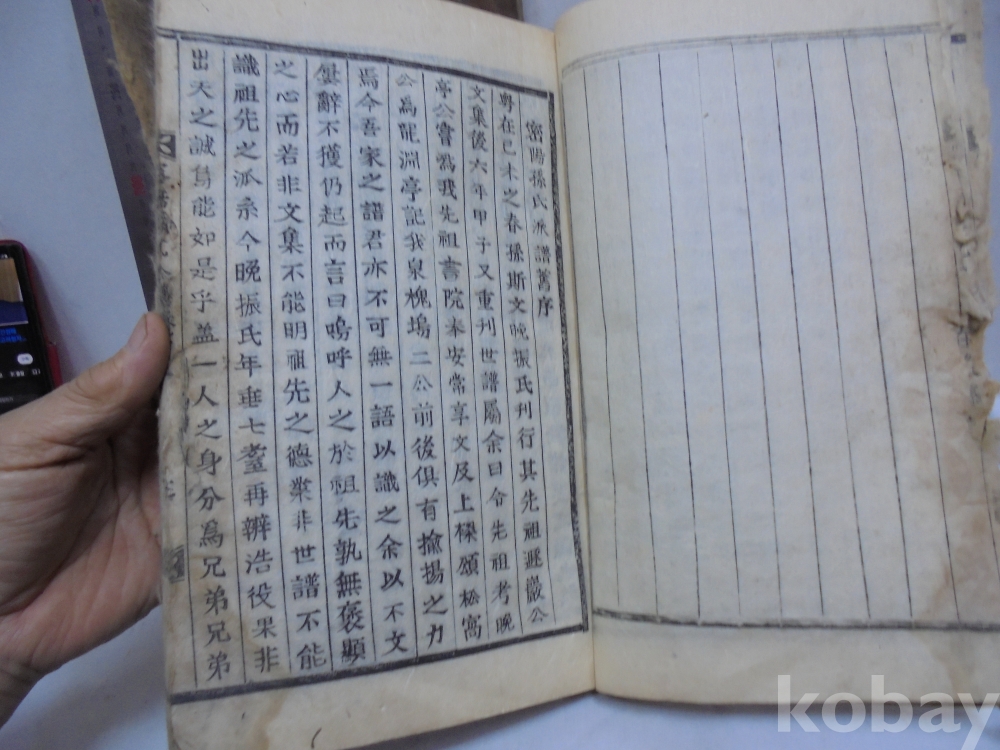 密陽孫氏派譜舊序
粤在己未之春孫斯文晩振氏刊行其先祖遯巖公
文集後六年甲子又重刊世譜屬余曰令先祖考晩
亭公嘗爲我先祖書院奉安常享文及上樑頌松窩
公爲龍淵亭記我泉槐塢二公前後俱有揄揚之力
焉今吾家之譜君亦不可無一語以識之余以不文
屢辭不獲仍起而言曰嗚呼人之於祖先孰無褒顯
之心而若非文集不能明祖先之德業非世譜不能
識祖先之派系今晩振氏年垂七耋再辦浩役果非
出天之誠曷能如是乎盖一人之身分爲兄弟兄弟
kobay